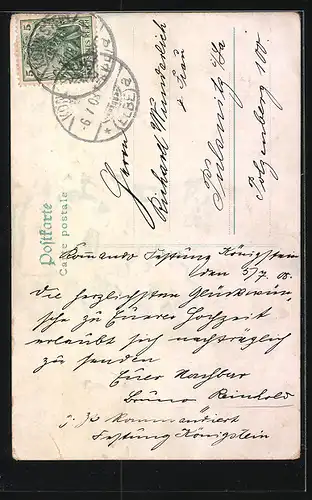 Postkarte
Carte postale
5
5
KÖNIGSTEIN
(ELBE) a
6/7 05
Herrn
Richard Wunderlich
u. Frau
Pulsnitz i/Sa
Polzenberg 100.
Kommando Festung Königstein
den 5/7. 05.
Die herzlichsten Glückwün-
sche zu Eurer Hochzeit
erlaubt sich nachträglich
zu senden
Euer Nachbar
Bruno Reinhold
z. Zt. kommandiert
Festung Königstein